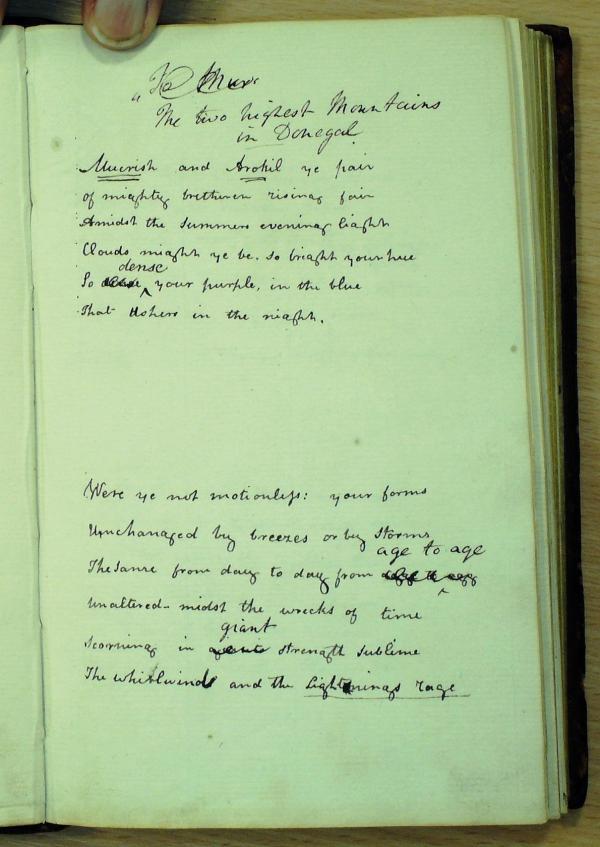 "To
The two highest Mountains
in Donegal
Mucrish and Arokil ye pair
of mighty bretheren rising fair
Amidst the summers evening light
Clouds might ye be. so bright your hue
dense
So your purple, in the blue
That Ushers in the night.
Were ye not motionless: your forms
Unchanged by breezes or by storms
age to age
The same from day to day from
unaltered - midst the wrecks of time
giant
Scorning in strength sublime
The whirlwinds and the Lightnings rage